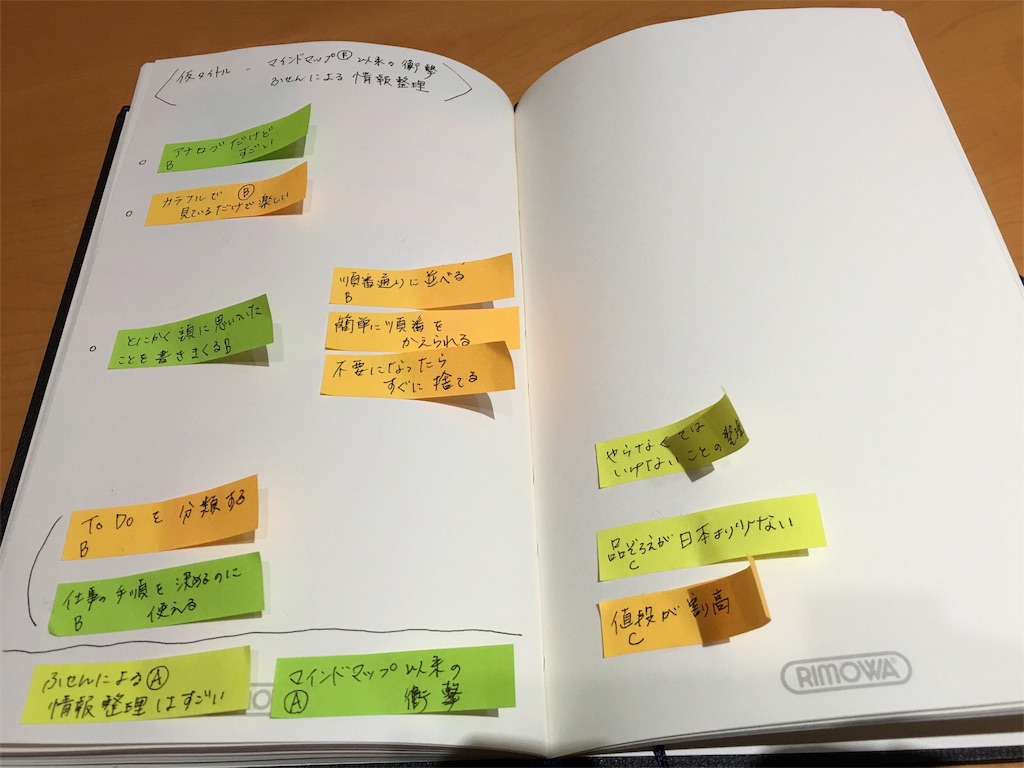 仮タイトル - マインドマップ® 以来の衝撃
ふせんによる 情報整理
アナログだけど
すごい
B
カラフルで B
見ているだけで楽しい
順番通りに並べる
B
簡単に順番を
かえられる
不要になったら
すぐに捨てる
とにかく頭に思いついた
ことを書きまくる B
To Do を分類する
B
仕事の手順を決めるのに
B 使える
ふせんによる A
情報整理はすごい
マインドマップ以来の
A 衝撃
やらなくては
いけないことの整理
品ぞろえが日本より少ない
C
値段が割高
C
RIMOWA